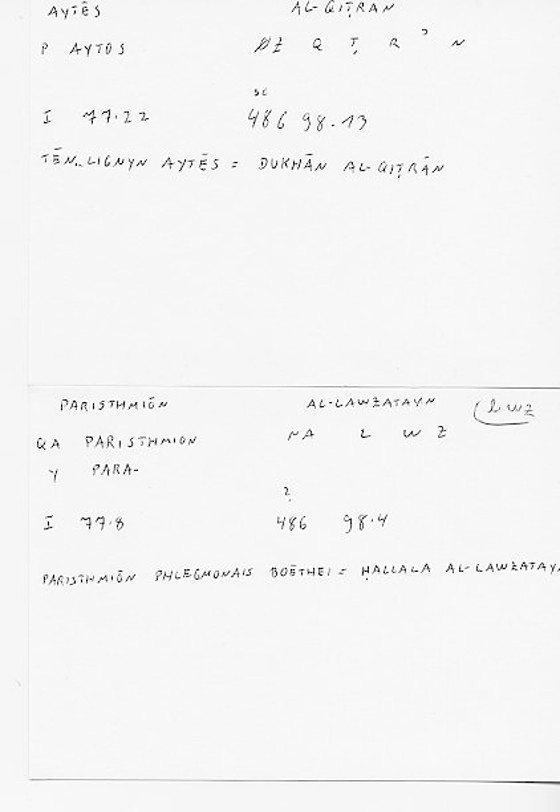 AYTĒS AL-QIṬRAN
P AYTOS ØŻ Q Ṭ R ʾ N
SC
I 77.22 486 98.13
TĒN..LIGNYN AYTĒS = DUKHĀN AL-QIṬRĀN
PARISTHMIŌN AL-LAWZATAYN (LWZ
QA PARISTHMION NA L W Z
Y PARA-
?
I 77.8 486 98.4
PARISTHMIŌN PHLEGMONAIS BOĒTHEI = ḤALLALA AL-LAWZATAYN